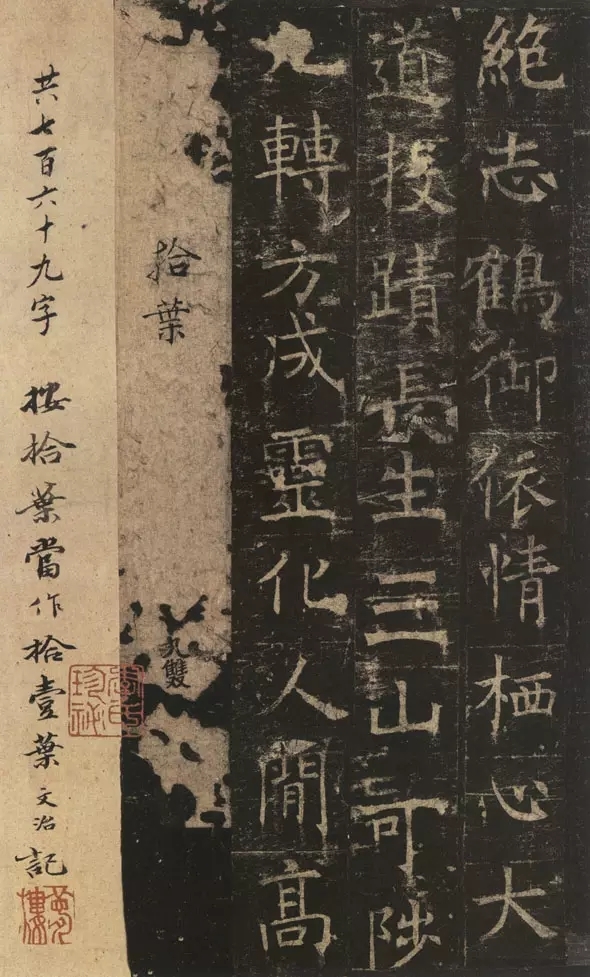 絶志鶴御依情栖心大
道投蹟長生三山可陟
九轉方成靈化人閒高
拾葉
九雙
共七百六十九字 按拾葉當作拾壹葉 文治記
夢樓